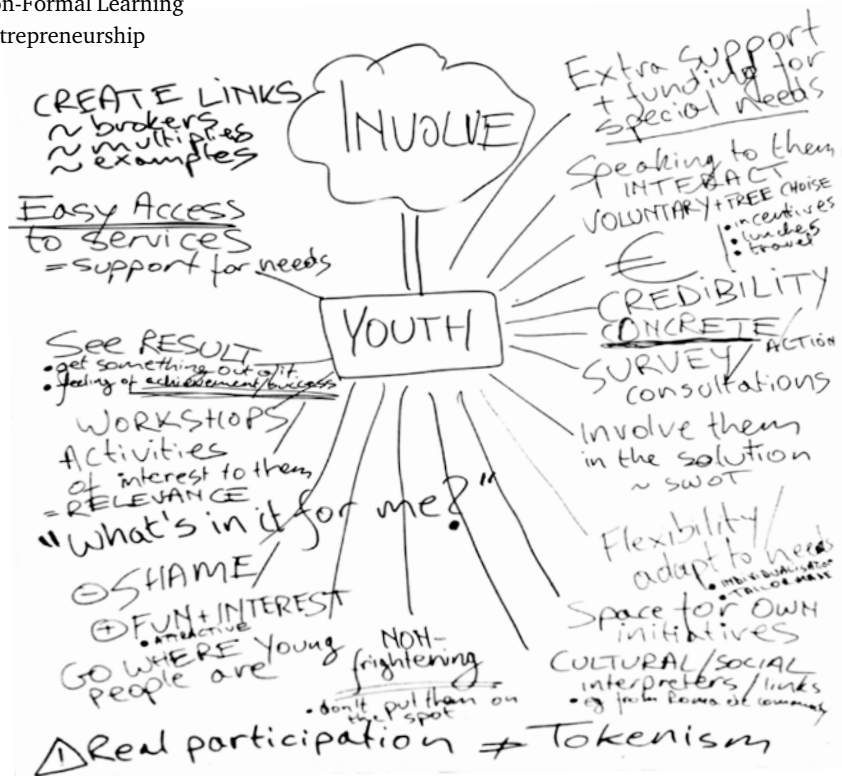 on-Formal Learning
trepreneurship
INVOLVE
YOUTH
CREATE LINKS
~ brokers
~ multiplies
~ examples
Easy Access
to services
= support for needs
See RESULT
• get something out of it
• feeling of achievement/success
WORKSHOPS
Activities
of interest to them
= RELEVANCE
"What's in it for me?"
⊖ SHAME
⊕ FUN + INTEREST
• ATTRACTIVE
GO WHERE Young
people are
NON-
frightening
• don't put them on
the spot
Extra support
+ funding for
special needs
Speaking to them
INTERACT
VOLUNTARY + FREE CHOISE
• incentives
• lunches
• travel
€
CREDIBILITY
CONCRETE /
ACTION
SURVEY /
consultations
Involve them
in the solution
~ SWOT
Flexibility /
adapt to needs
• INDIVIDUALISATION
• TAILOR MADE
Space for OWN
initiatives
CULTURAL/SOCIAL
interpreters / links
• eg from Roma etc community
⚠ Real participation ≠ Tokenism